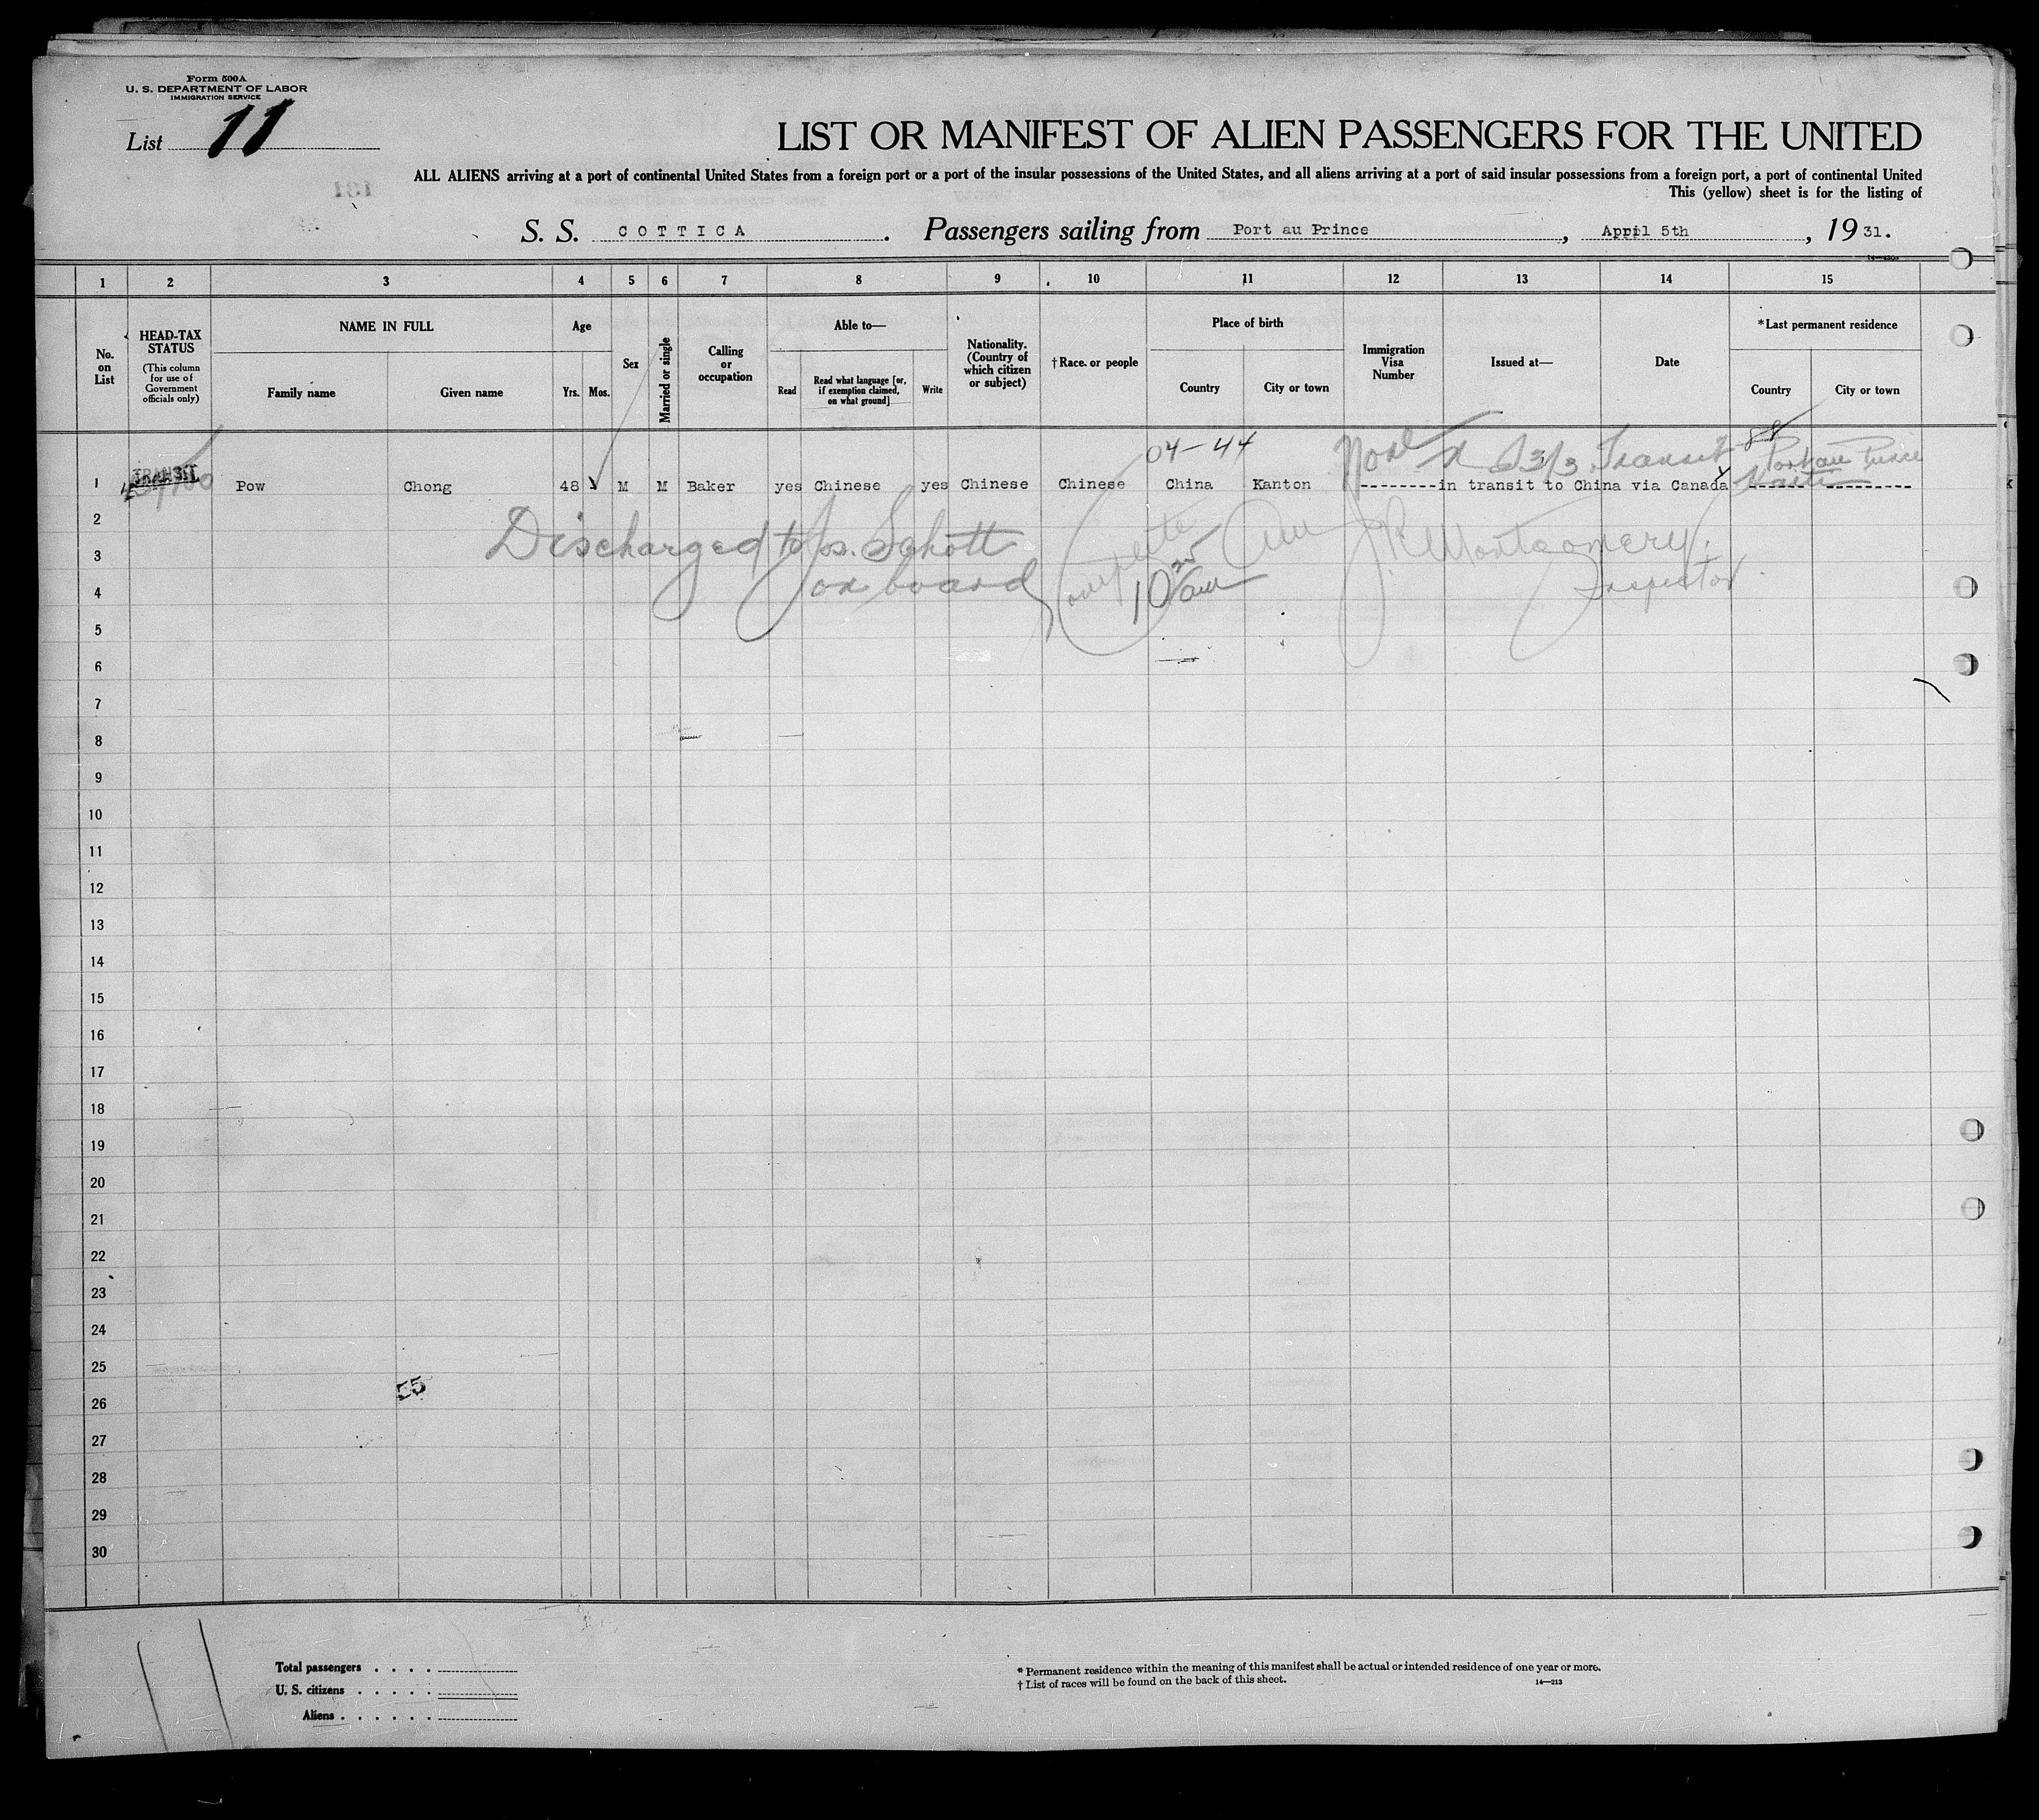 Form 500A
U. S. DEPARTMENT OF LABOR
IMMIGRATION SERVICE
List 11
LIST OR MANIFEST OF ALIEN PASSENGERS FOR THE UNITED
ALL ALIENS arriving at a port of continental United States from a foreign port or a port of the insular possessions of the United States, and all aliens arriving at a port of said insular possessions from a foreign port, a port of continental United
This (yellow) sheet is for the listing of
S. S. COTTICA. Passengers sailing from Port au Prince, April 5th, 1931.
1 2 3 4 5 6 7 8 9 10 11 12 13 14 15
No. on List
HEAD-TAX STATUS
(This column for use of Government officials only)
NAME IN FULL
Family name
Given name
Age
Yrs. Mos.
Sex
Married or single
Calling or occupation
Able to—
Read
Read what language [or, if exemption claimed, on what ground]
Write
Nationality. (Country of which citizen or subject)
† Race or people
Place of birth
Country
City or town
Immigration Visa Number
Issued at—
Date
*Last permanent residence
Country
City or town
04-44
Transit
88
Port au Prince
1 TRANSIT Pow Chong 48 M M Baker yes Chinese yes Chinese Chinese China Kanton --------in transit to China via Canada Haiti
2
Discharged to Jos. Schott
J. R. Montgomery
3
on board
10 am
Inspector
4
5
6
7
8
9
10
11
12
13
14
15
16
17
18
19
20
21
22
23
24
25
55
26
27
28
29
30
Total passengers . . . .
U. S. citizens . . . . .
Aliens . . . . . .
* Permanent residence within the meaning of this manifest shall be actual or intended residence of one year or more.
† List of races will be found on the back of this sheet.
14—213